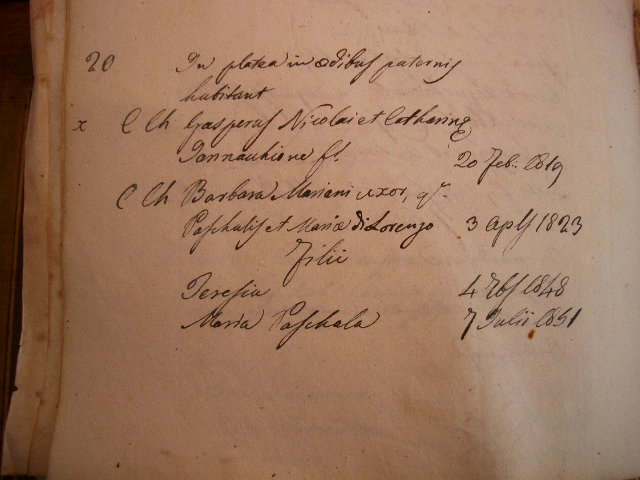 20 In platea in ædibus paternis
habitant
x C Ch Gasperus Nicolai et Catharinæ
Jannacchione f.s 20 Feb: 1819
C Ch Barbara Mariani uxor, q.m
Paschalis et Mariæ di Lorenzo 3 Apls 1823
Filii
Teresia 4 7bs 1848
Maria Paschala 7 Julii 1851